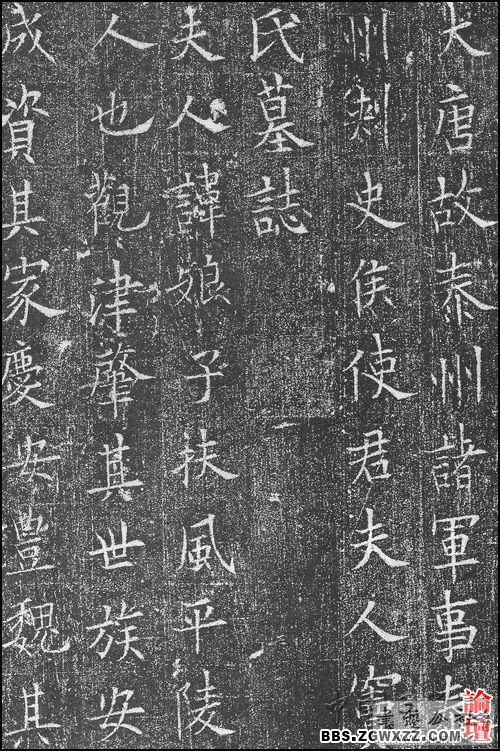 大唐故泰州諸軍事
州刺史侯使君夫人竇
氏墓誌
夫人諱娘子扶風平陵
人也觀津肇其世族安
成資其家慶安豊魏其
論壇
BBS.ZGWXZZ.COM